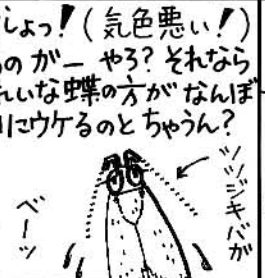 しょっ!(気色悪い!)
のがーやろ?それなら
れいな蝶の方がなんぼ
にウケるのとちゃうん?
ツツジキバガ
べーッ